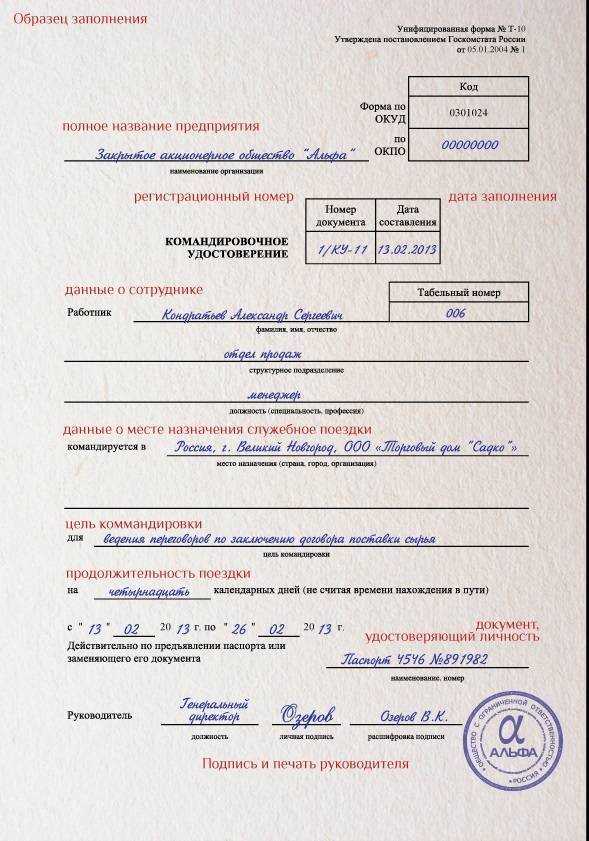 Образец заполнения
Унифицированная форма № Т-10
Утверждена постановлением Госкомстата России
от 05.01.2004 № 1
Код
Форма по ОКУД
0301024
по ОКПО
00000000
полное название предприятия
Закрытое акционерное общество "Альфа"
наименование организации
регистрационный номер
дата заполнения
Номер документа
Дата составления
КОМАНДИРОВОЧНОЕ
УДОСТОВЕРЕНИЕ
1/КУ-11
13.02.2013
данные о сотруднике
Табельный номер
Работник
Кондратьев Александр Сергеевич
006
фамилия, имя, отчество
отдел продаж
структурное подразделение
менеджер
должность (специальность, профессия)
данные о месте назначения служебное поездки
командируется в Россия, г. Великий Новгород, ООО «Торговый дом "Садко"»
место назначения (страна, город, организация)
цель коммандировки
для ведения переговоров по заключению договора поставки сырья
цель командировки
продолжительность поездки
на четырнадцать календарных дней (не считая времени нахождения в пути)
с "13" 02 2013 г. по "26" 02 2013 г.
документ,
удостоверяющий личность
Действительно по предъявлении паспорта или
заменяющего его документа
Паспорт 4546 №891982
наименование, номер
Руководитель
Генеральный
директор
Озеров
Озеров В.К.
должность
личная подпись
расшифровка подписи
ОБЩЕСТВО С ОГРАНИЧЕННОЙ ОТВЕТСТВЕННОСТЬЮ
α
АЛЬФА
РОССИЯ
Подпись и печать руководителя